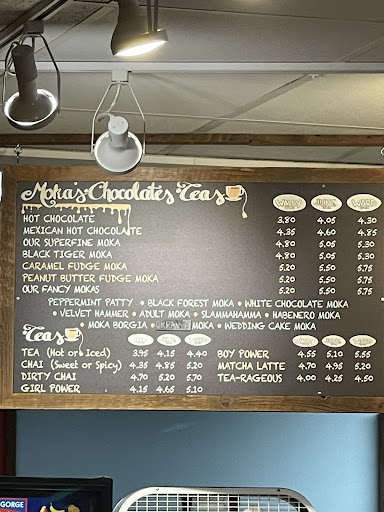 Moka's • Chocolates Teas
WALLY JUNE WARD
HOT CHOCOLATE 3.80 4.05 4.30
MEXICAN HOT CHOCOLATE 4.35 4.60 4.85
OUR SUPERFINE MOKA 4.80 5.05 5.30
BLACK TIGER MOKA 4.80 5.05 5.30
CARAMEL FUDGE MOKA 5.20 5.50 5.75
PEANUT BUTTER FUDGE MOKA 5.20 5.50 5.75
OUR FANCY MOKAS 5.20 5.50 5.75
PEPPERMINT PATTY • BLACK FOREST MOKA • WHITE CHOCOLATE MOKA
• VELVET HAMMER • ADULT MOKA • SLAMMAHAMMA • HABENERO MOKA
• MOKA BORGIA • UKRAINE MOKA • WEDDING CAKE MOKA
Teas
TEA (Hot or Iced) 3.95 4.15 4.40 BOY POWER 4.55 5.10 5.55
CHAI (Sweet or Spicy) 4.35 4.85 5.20 MATCHA LATTE 4.70 4.95 5.20
DIRTY CHAI 4.70 5.20 5.70 TEA-RAGEOUS 4.00 4.25 4.50
GIRL POWER 4.15 4.65 5.10
GORGE